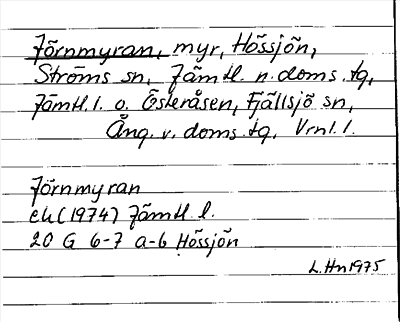 Jörnmyran, myr, Hössjön,
Ströms sn, Jämtl. n. doms. tg,
Jämtl. l. o. Österåsen, Fjällsjö sn,
Ång. v. doms. tg, Vrnl. l.
Jörnmyran
ek (1974) Jämtl l.
20 G 6-7 a-b Hössjön
L. Hn 1975